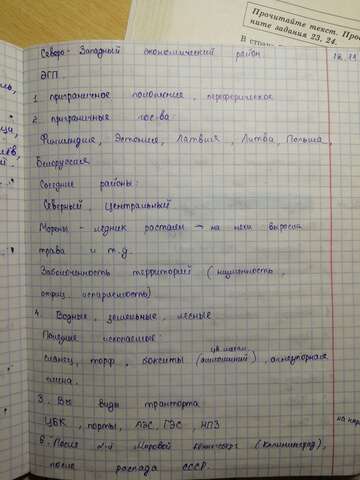 Прочитайте текст. Про
ните задания 23, 24.
В стран
Северо-Западный экономический район
12.11
ЭГП
1. приграничное положение, переферическое
2. приграничные гос-ва:
Финляндия, Эстония, Латвия, Литва, Польша,
Белоруссия
Соседние районы:
Северный, Центральный
Морены - ледник растаял → на нем выросла
трава и т.д.
Заболоченность территорий (низменность,
отриц. испаряемость)
4. Водные, земельные, лесные
Полезные ископаемые:
цв. метал.
сланец, торф, бокситы (алюминий), огнеупорная
глина.
3. Все виды транспорта
ЦБК, порты, АЭС, ГЭС, НПЗ
6. После 2-й Мировой (Калининград),
после распада СССР.